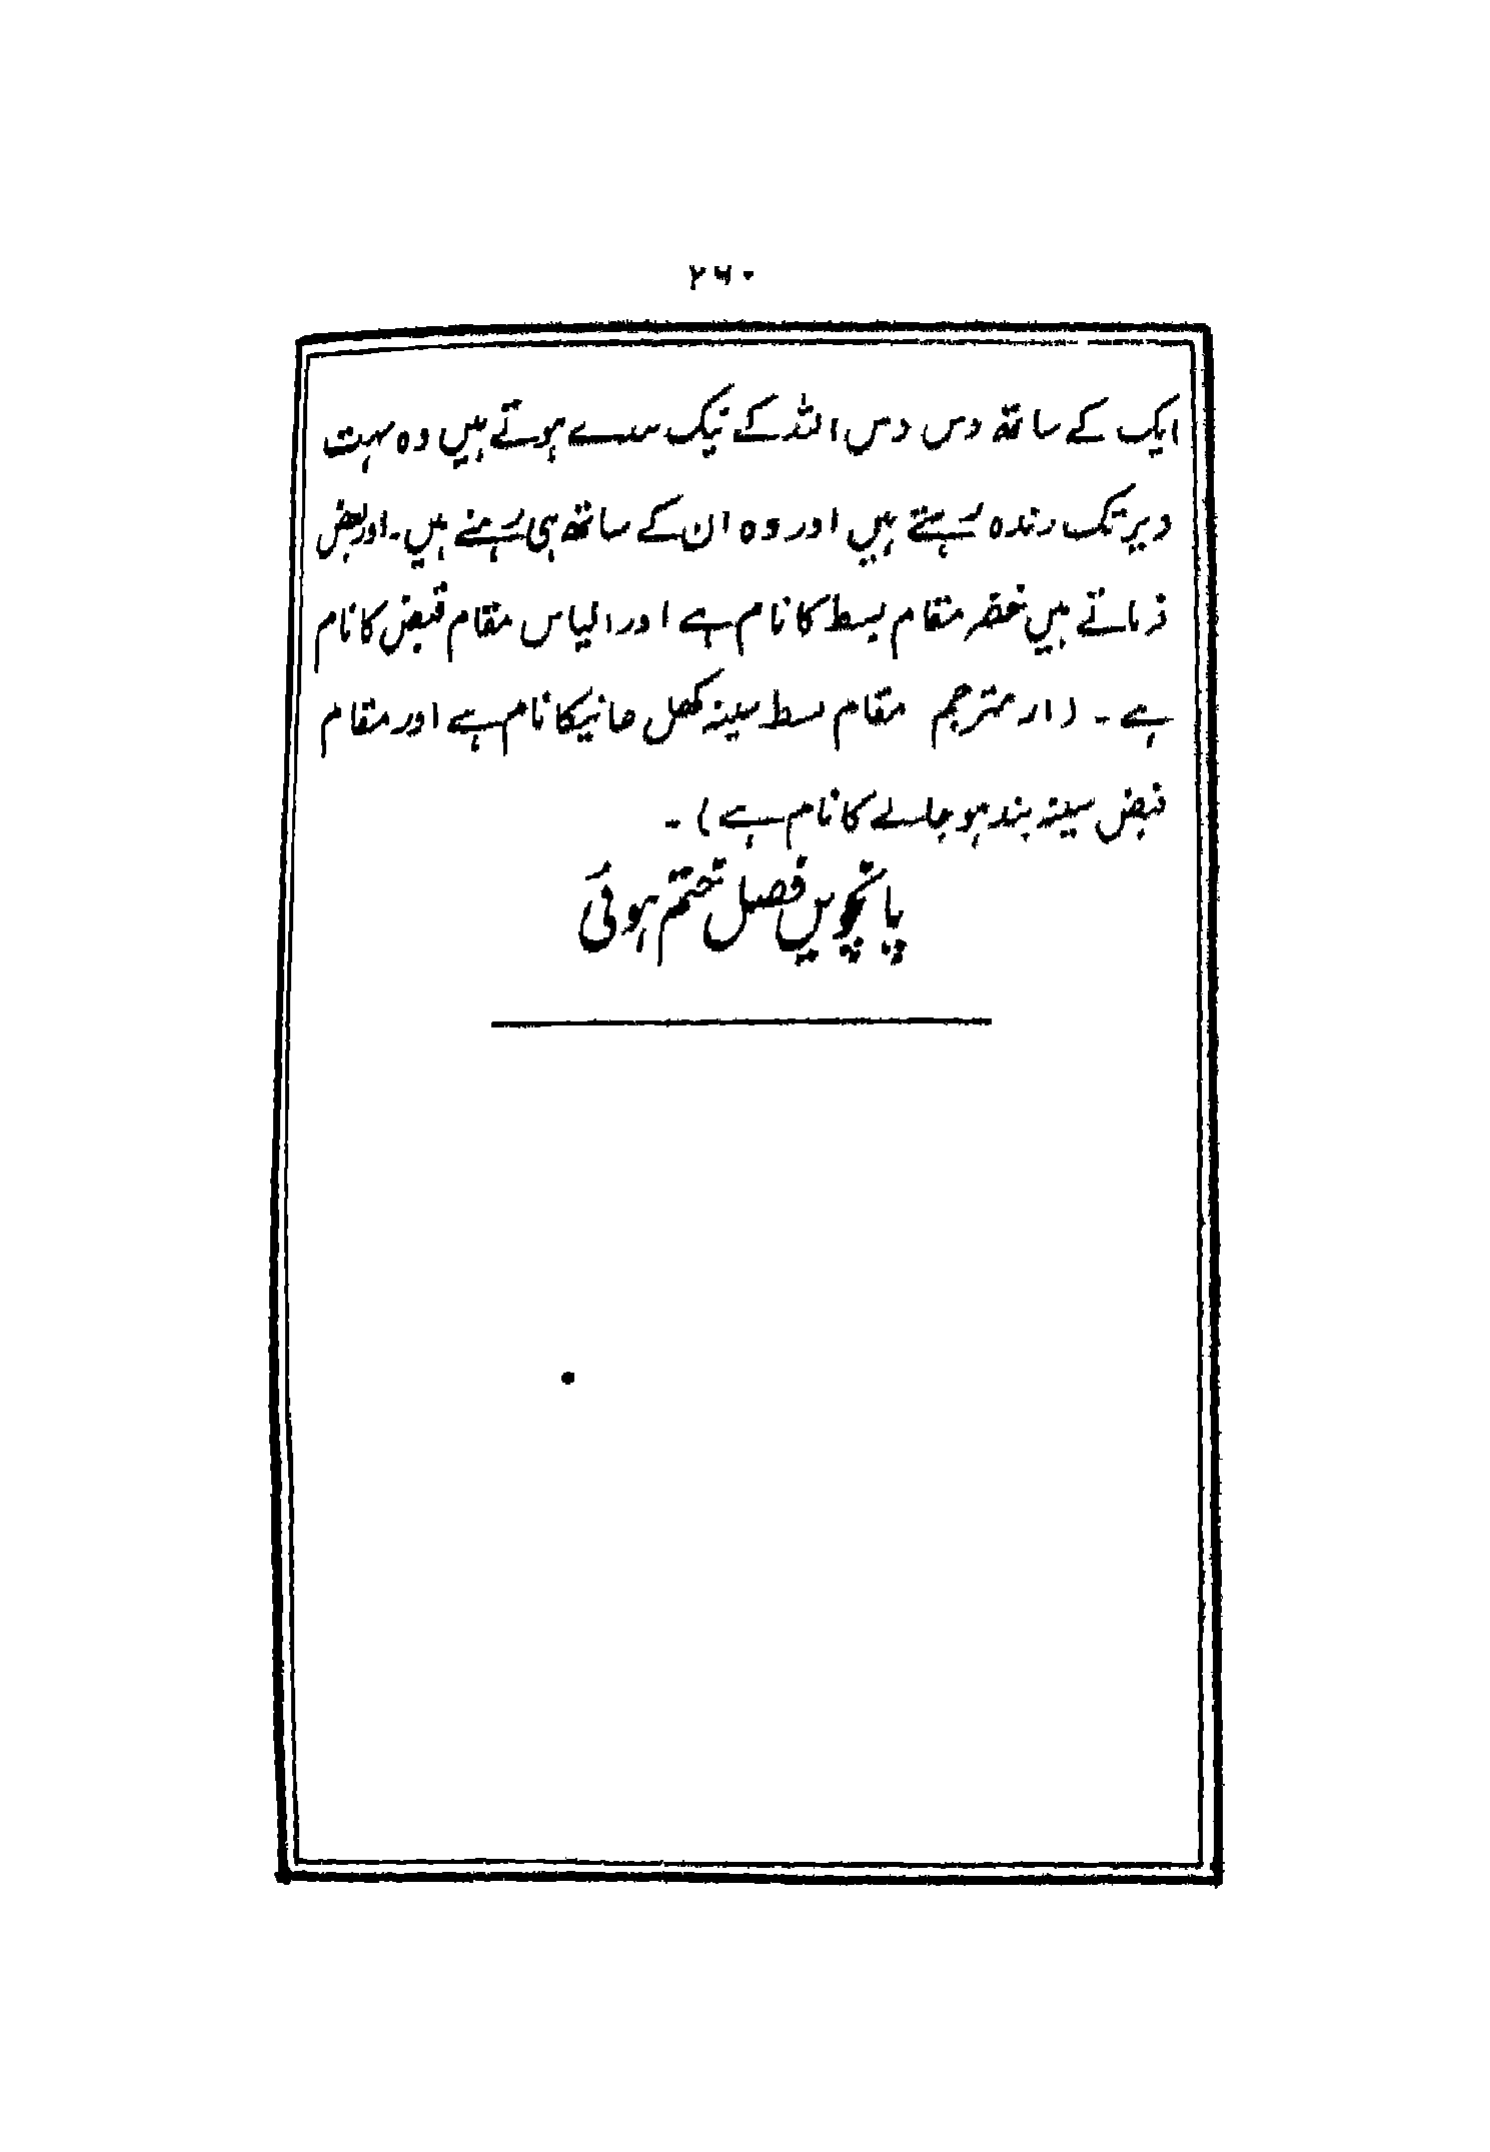 ۲۶۰
ایک کے ساتھ دس دس اللہ کے نیک بندے ہوتے ہیں وہ بہت
دیر تک زندہ رہتے ہیں اور وہ ان کے ساتھ ہی رہتے ہیں۔ اور بعض
فرماتے ہیں خضر مقام بسط کا نام ہے اور الیاس مقام قبض کا نام
ہے۔ (از مترجم مقام بسط سینہ کھل جانیکا نام ہے اور مقام
قبض سینہ بند ہو جانے کا نام ہے)۔
پانچویں فصل ختم ہوئی